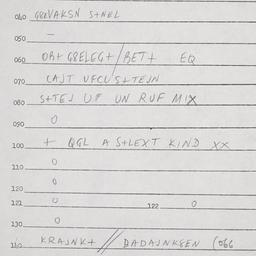 040 GREVAKSN S+NEL
050 -
060 OR+ GRELEGG+/BET+ EQ
070 CAJT UFCUS+TEJN
080 S+TEJ UF UN RUF MIX
090 0
100 + QGL A S+LEXT KIND XX
110 0
120 0
121 0 122 0
130 0
KRAJNK+ // BADAJNKSEN (066